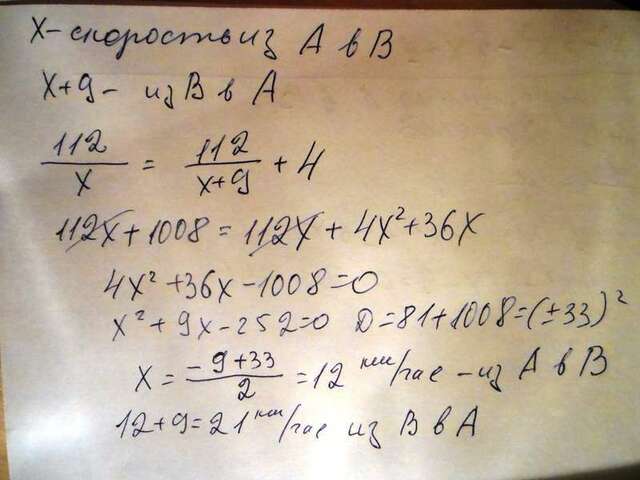 X - скорость из A в B
X+9 - из B в A
112/X = 112/(X+9) + 4
112X + 1008 = 112X + 4X² + 36X
4X² + 36X - 1008 = 0
X² + 9X - 252 = 0 D = 81 + 1008 = (±33)²
X = (-9+33)/2 = 12 км/час - из A в B
12 + 9 = 21 км/час из B в A